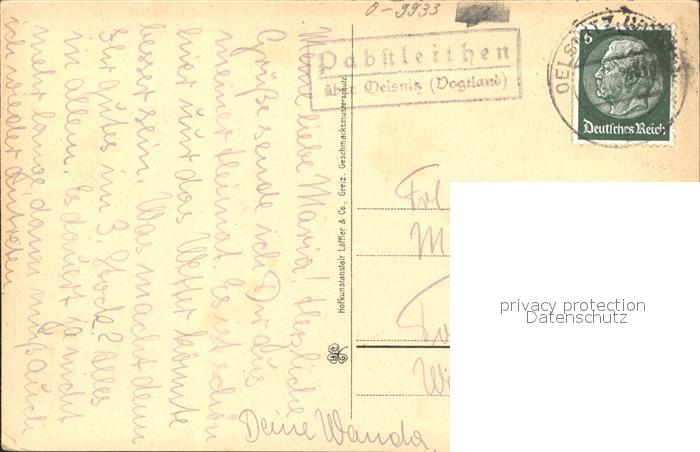 0-9933
Pabstleithen
über Oelsnitz (Vogtland)
OELSNITZ
6
Deutsches Reich
Meine liebe Maria! Herzliche
Grüße sende ich Dir aus
meiner Heimat. Es ist schön
hier nur das Wetter könnte
besser sein. Was macht denn
Ihr gutes im 3. Stock? Alles
in allem. Es dauert ja nicht
mehr lange dann muß auch
ich wieder antreten
Deine Wanda.
Hofkunstanstalt Löffler & Co., Greiz. Geschmacksmusterschutz
Frl
M
Wi
privacy protection
Datenschutz